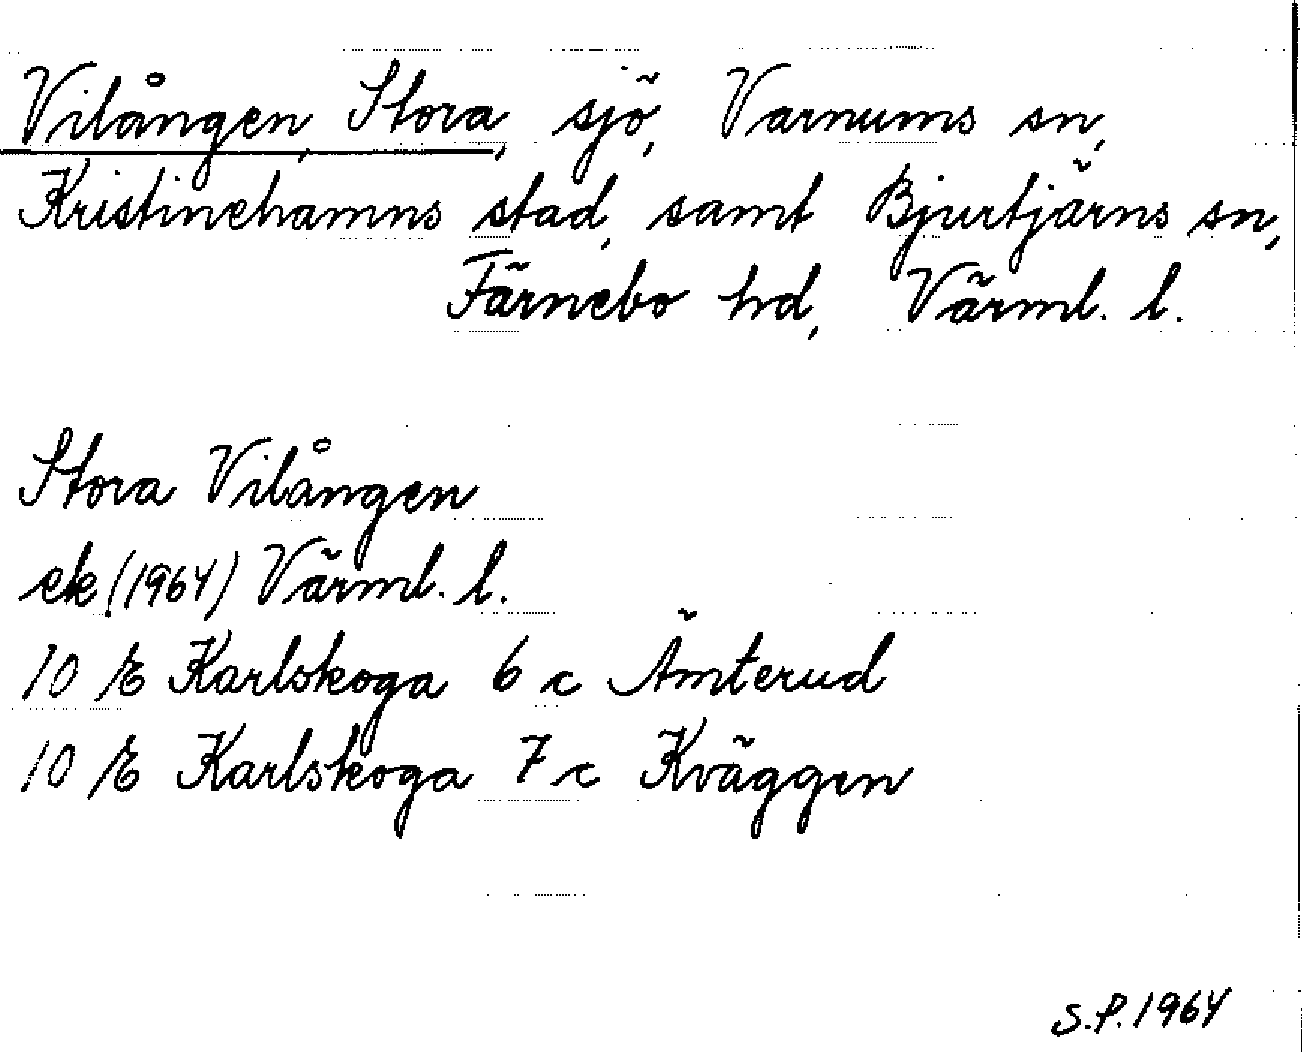 Vilången, Stora, sjö, Varnums sn,
Kristinehamns stad, samt Bjurtjärns sn,
Färnebo hd, Värml. l.
Stora Vilången
ek (1964) Värml. l.
10 E Karlskoga 6 c Ämterud
10 E Karlskoga 7 c Kväggen
S.P. 1964